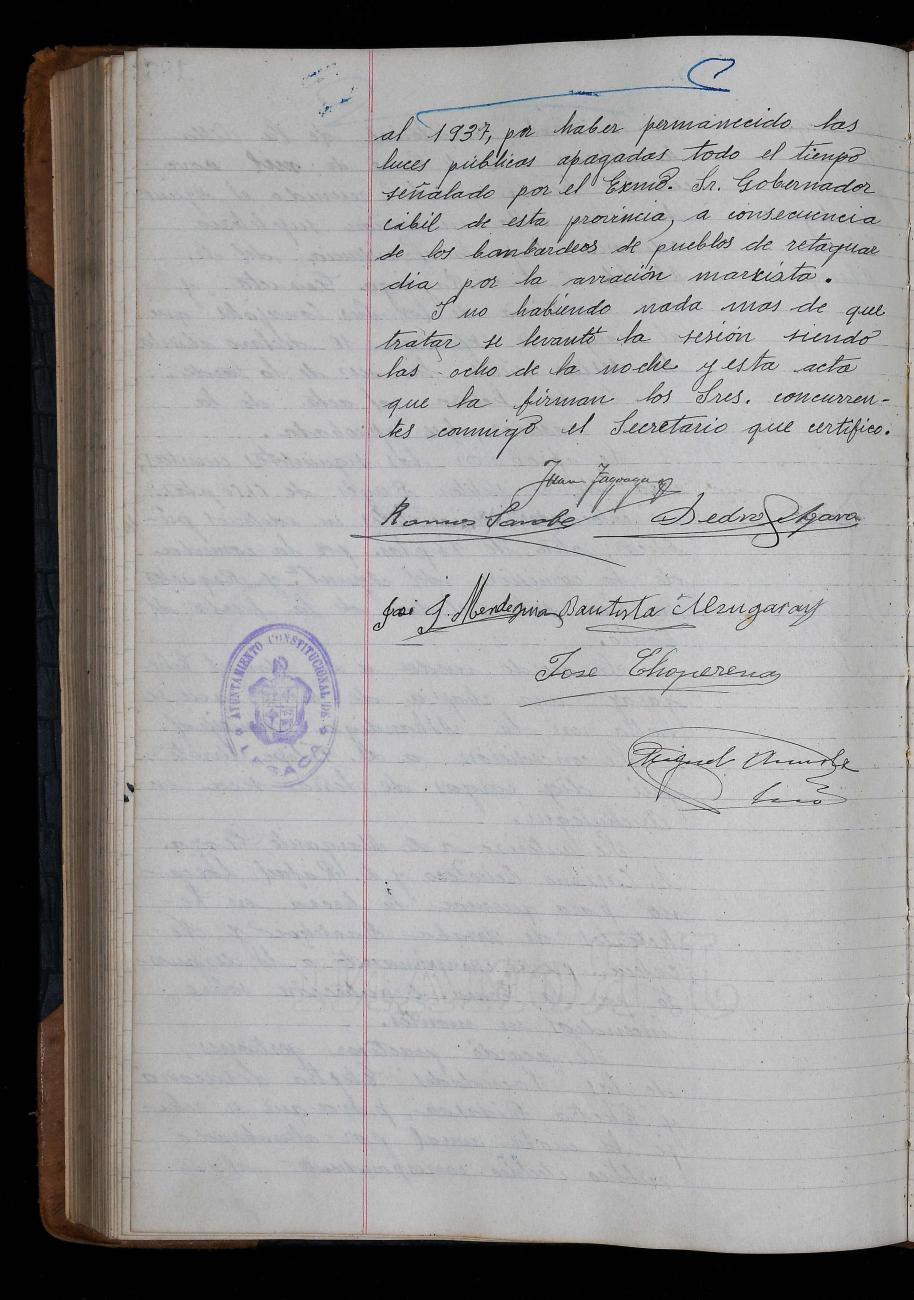 al 1937, por haber permanecido las
luces públicas apagadas todo el tiempo
señalado por el Exmo. Sr. Gobernador
cibil de esta provincia, a consecuencia
de los bombardeos de pueblos de retaguar
dia por la aviación marxista.
Y no habiendo nada mas de que
tratar se levantó la sesión siendo
las ocho de la noche y esta acta
que la firman los Sres. concurren-
tes conmigo el Secretario que certifico.
Juan
Ramon Pedro
José J. Mendeguia Bautista
José Choperena
Miguel
AYUNTAMIENTO CONSTITUCIONAL DE
LESACA